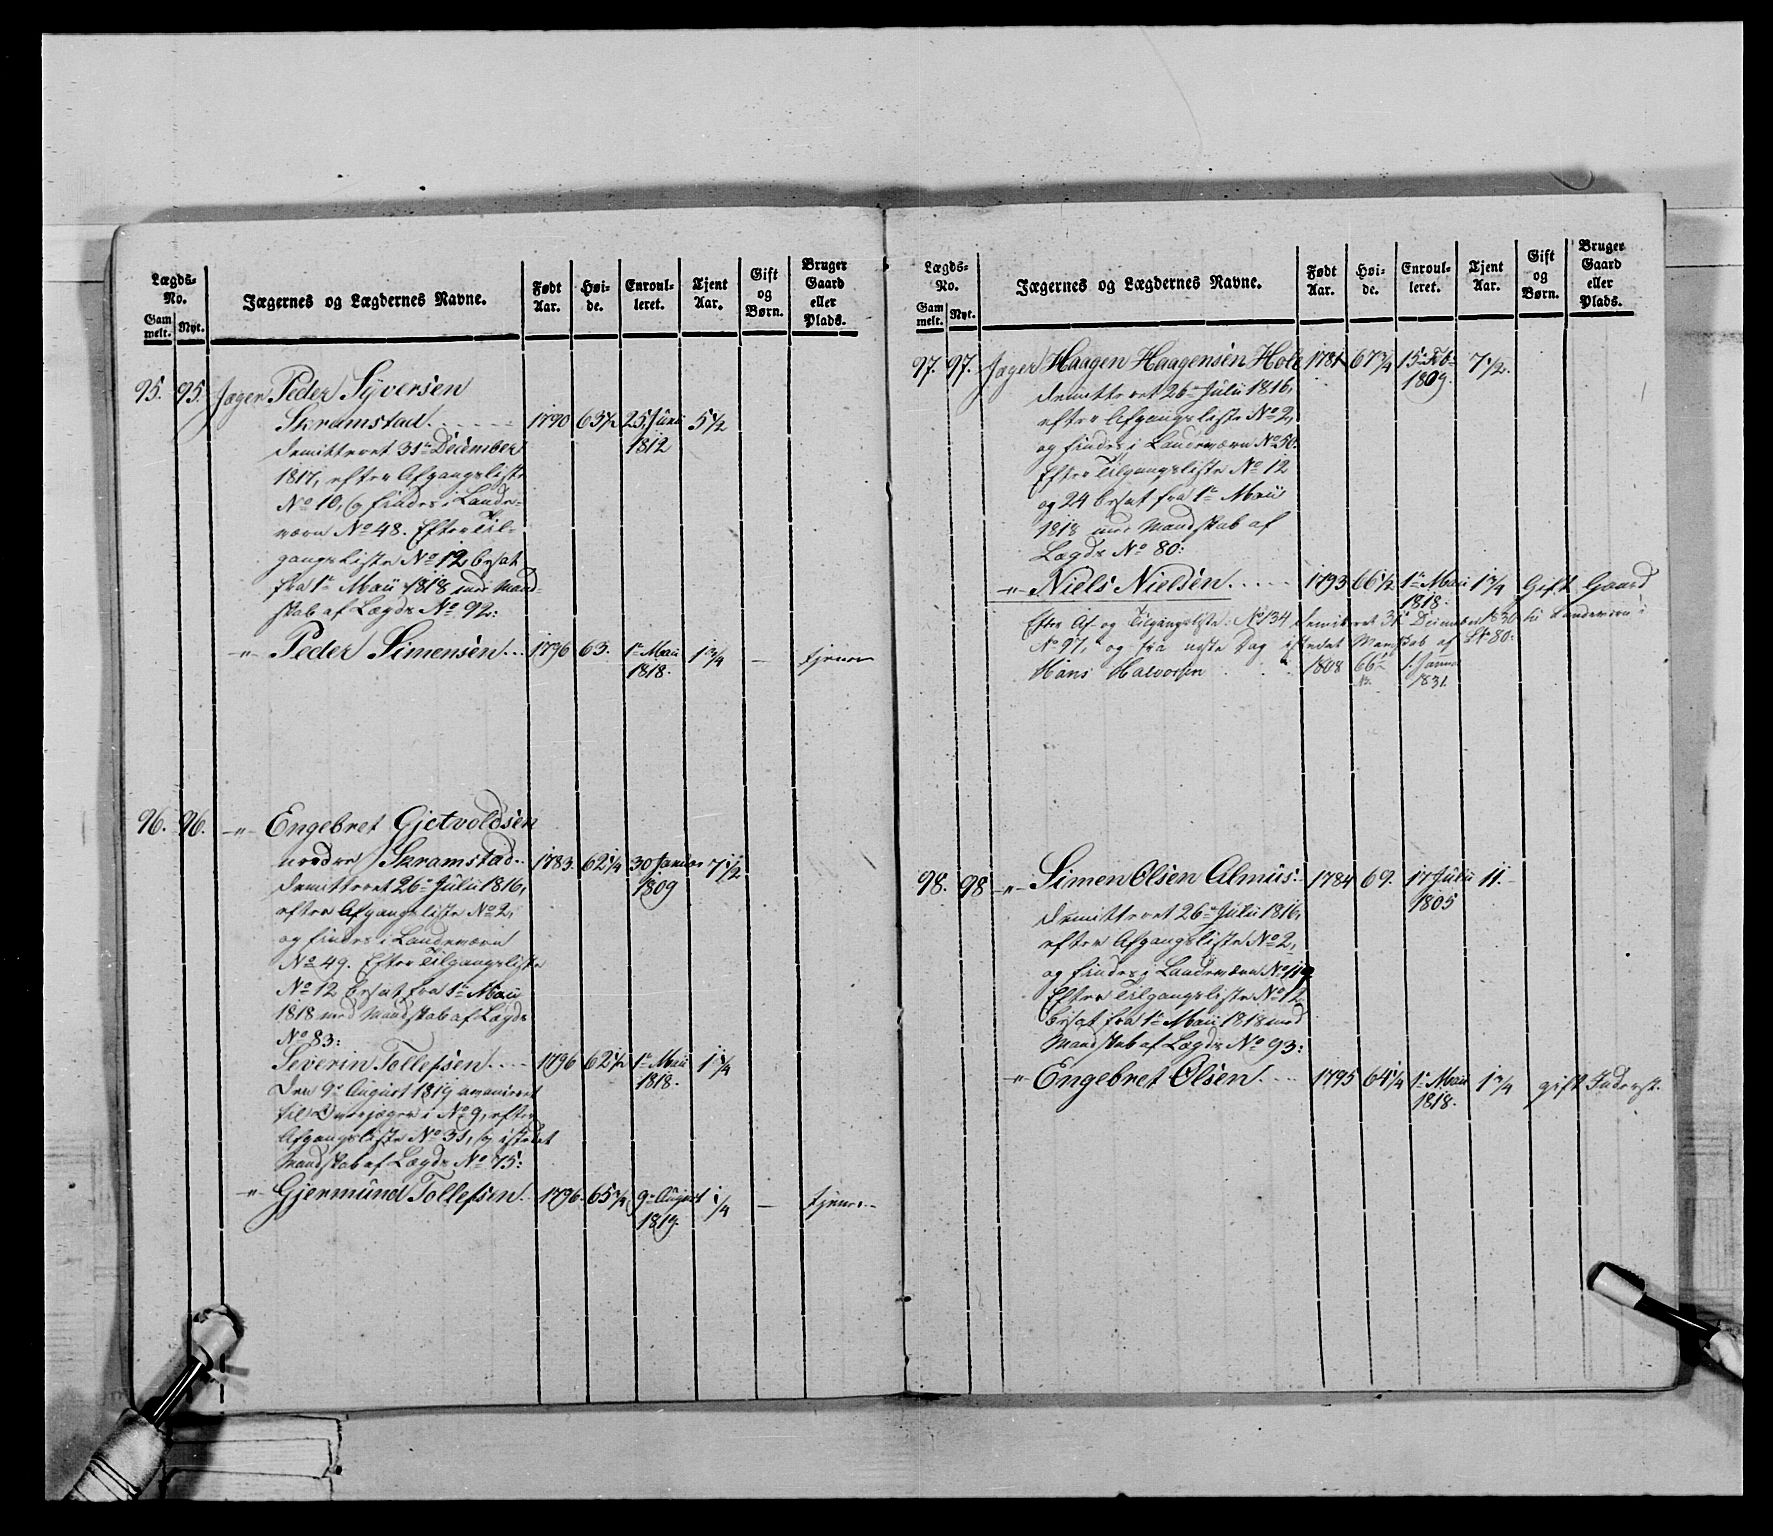 Lægds-
No.
Gam
melt.
Nyt.
Jægernes og Lægdernes Navne.
Født
Aar.
Høi-
de.
Enroul-
leret.
Tjent
Aar.
Gift
og
Børn.
Bruger
Gaard
eller
Plads.
95. 95. Jæger Peder Syversen
Skramstad. 1790 63½ 25 Juni 5½
1812
demitteret 31te December
1817, efter Afgangsliste
No 10, og findes i Lande-
værn No 48. Efter Til-
gangsliste No 12 besat
fra 1te Maii 1818 med Mand-
skab af Lægds No 92:
-"- Peder Simensen. 1796 63. 1te Maii 1¾ — tjener
1818.
96. 96. -"- Engebret Gjetvoldsen
nordre Skramstad. 1783. 62¼ 30 Januar 7½
1809
demitteret 26de Julii 1816,
efter Afgangsliste No 2,
og findes i Landeværn
No 49. Efter Tilgangsliste
No 12 besat fra 1te Maii
1818 med Mandskab af Lægds
No 83:
Severin Tollefsen. 1796 62½ 1te Maii 1¼
1818.
Den 9de August 1819 avanceret
til Underjæger i No 9, efter
Afgangsliste No 31, og istedet
Mandskab af Lægds No 75:
-"- Gjermund Tollefsen. 1796. 65¾ 9de August ¼ — tjener
1819.
Lægds-
No.
Gam
melt.
Nyt.
Jægernes og Lægdernes Navne.
Født
Aar.
Høi-
de.
Enroul-
leret.
Tjent
Aar.
Gift
og
Børn.
Bruger
Gaard
eller
Plads.
97. 97. Jæger Haagen Haagensen Hole 1781 67¾ 15de Feb. 7½.
1809.
demitteret 26de Julii 1816,
efter Afgangsliste No 2,
og findes i Landeværn No 50.
Efter Tilgangsliste No 12
og 24 besat fra 1te Maii
1818 med Mandskab af
Lægds No 80:
-"- Niels Nielsen. 1793 66½ 1te Maii 1¾ Gift Gaard
1818.
Efter Af og Tilgangsliste No 134 demitteret 31te December 1830 til Landeværn i
No 97, og fra neste Dag istedet Mandskab af No 80:
Hans Halvorsen 1808 66½ 1. Januar
1831.
98. 98 -"- Simen Olsen Almus: 1784 69. 17 Julii 11.
1805
demitteret 26de Julii 1816,
efter Afgangsliste No 2,
og findes i Landeværn No 119
Efter Tilgangsliste No 12
besat fra 1te Maii 1818 med
Mandskab af Lægds No 93:
-"- Engebret Olsen. 1795 64¼ 1te Maii 1¾ gift Inderst.
1818.